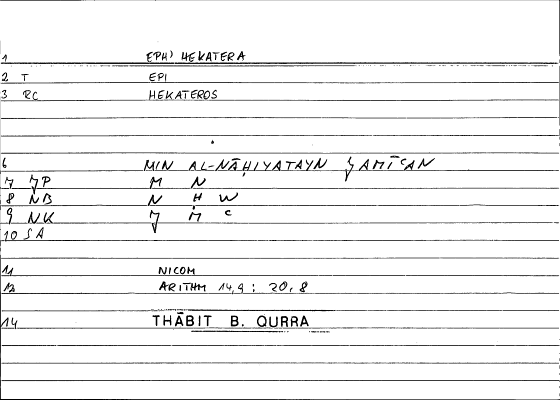 1 EPH) HEKATERA
2 T EPI
3 RC HEKATEROS
6 MIN AL-NĀḤIYATAYN ǦAMĪʿAN
7 JP M N
8 NB N Ḥ W
9 NK Ǧ M ʿ
10 SA
11 NICOM
12 ARITHM 14,9 : 20,8
14 THĀBIT B. QURRA